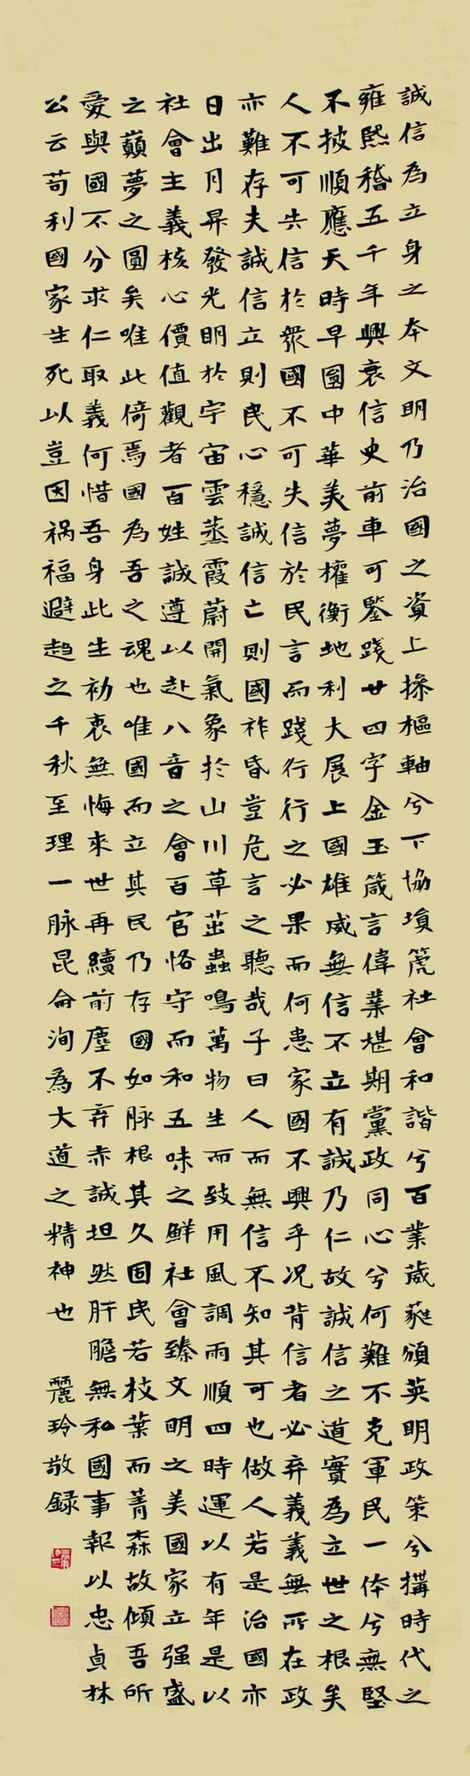 誠信為立身之本文明乃治國之資上操樞軸兮下協塤篪社會和諧兮百業葳蕤頒英明政策兮搆時代之
雍熙稽五千年興衰信史前車可鑒踐廿四字金玉箴言偉業堪期黨政同心兮何難不克軍民一体兮無堅
不披順應天時早圓中華美夢權衡地利大展上國雄威無信不立有誠乃仁故誠信之道實為立世之根矣
人不可失信於衆國不可失信於民言而踐行行之必果而何患家國不興乎况背信者必弃義義無所在政
亦難存夫誠信立則民心穩誠信亡則國祚昏豈危言之聽哉子曰人而無信不知其可也做人若是治國亦
日出月昇發光明於宇宙雲蒸霞蔚開氣象於山川草茁蟲鳴萬物生而致用風調雨順四時運以有年是以
社會主義核心價值觀者百姓誠遵以赴八音之會百官恪守而和五味之鮮社會臻文明之美國家立强盛
之巔夢之圓矣唯此倚焉國為吾之魂也唯國而立其民乃存國如脉根其久固民若枝葉而菁森故傾吾所
愛與國不分求仁取義何惜吾身此生初衷無悔來世再續前塵不弃赤誠坦然肝膽無私國事報以忠貞林
公云苟利國家生死以豈因禍福避趋之千秋至理一脉昆侖洵為大道之精神也 麗玲敬録